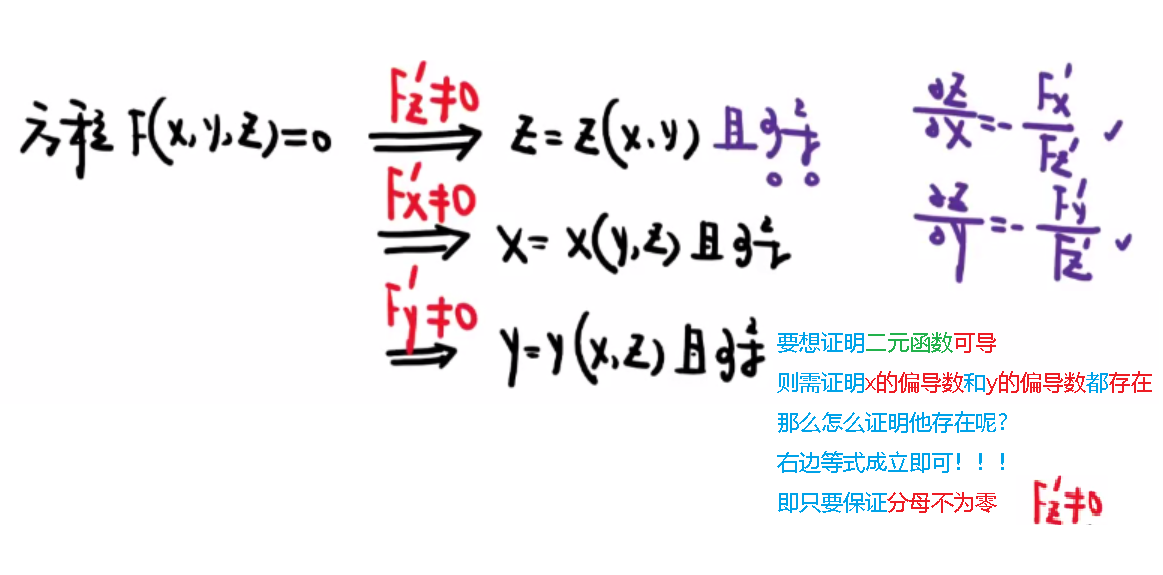 方程 F(x,y,z)=0
F'z≠0
⟹ z=z(x,y) 且可导
F'x≠0
⟹ x=x(y,z) 且可导
F'y≠0
⟹ y=y(x,z) 且可导
∂z/∂x=-F'x/F'z ✓
∂z/∂y=-F'y/F'z ✓
要想证明二元函数可导
则需证明x的偏导数和y的偏导数都存在
那么怎么证明他存在呢?
右边等式成立即可!!!
即只要保证分母不为零 F'z≠0